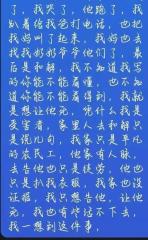 了，我哭了，他跑了，我
趴着给我爸打电话，也把
我妈叫了起来，我妈也去
找我奶奶爷爷他们了，最
后是和解，我不知道我写
的你能不能看懂，也不知
道你能不能看得到，我就
是想让他元，凭什么我是
受害者，家里人去和解只
是说几句，我家只是平凡
的农民工，他家有人脉，
去告他也只是徒劳，他也
只是扒我衣服，我家也没
证据，我只想告他，让他
元，我也有些话不下去，
我一想到这件事，